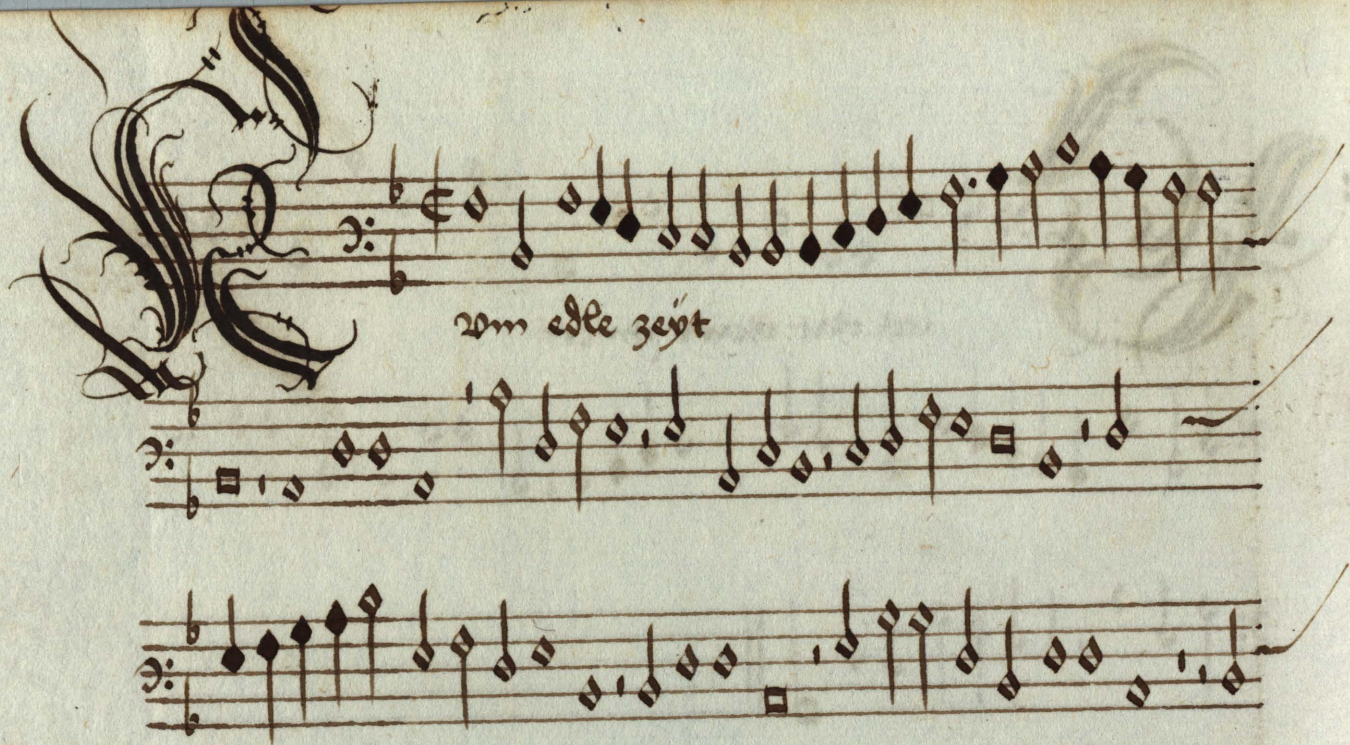 Kum edle zeÿt